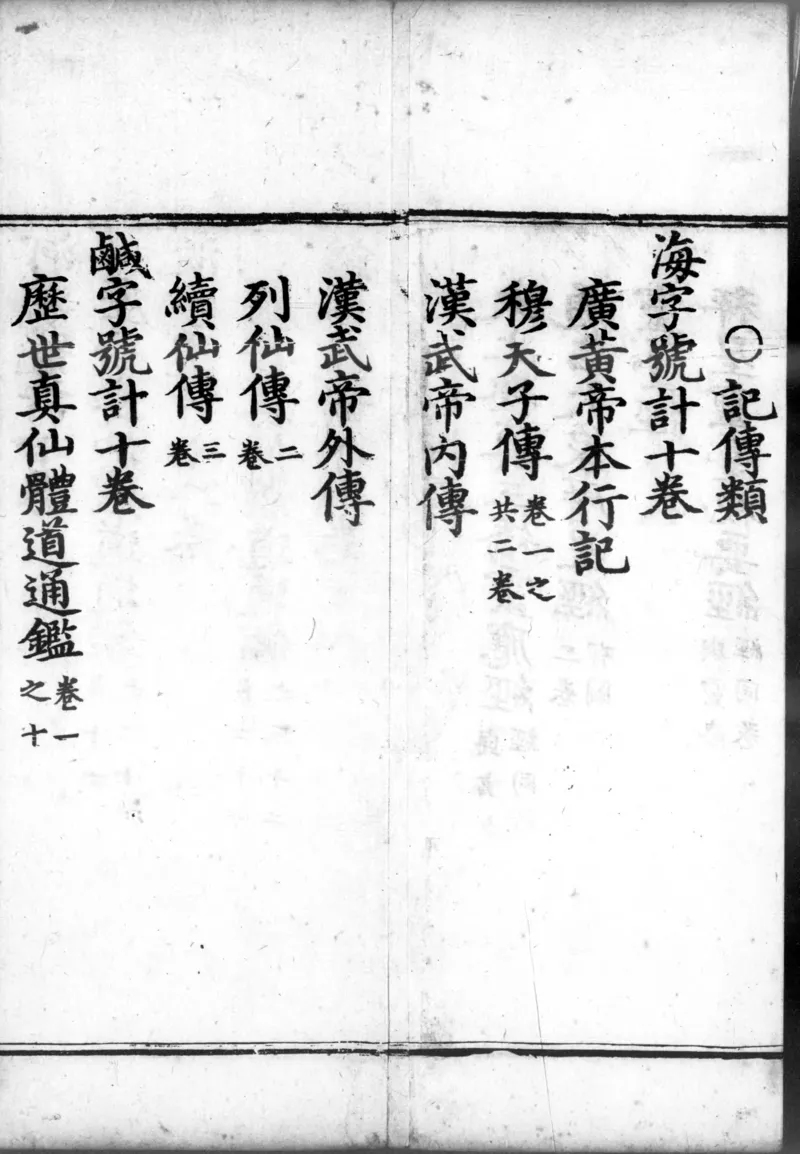 〇記傳類
海字號計十卷
廣黃帝本行記
穆天子傳 卷一之共二卷
漢武帝內傳
漢武帝外傳
列仙傳 二卷
續仙傳 三卷
鹹字號計十卷
歷世真仙體道通鑑 卷一之十